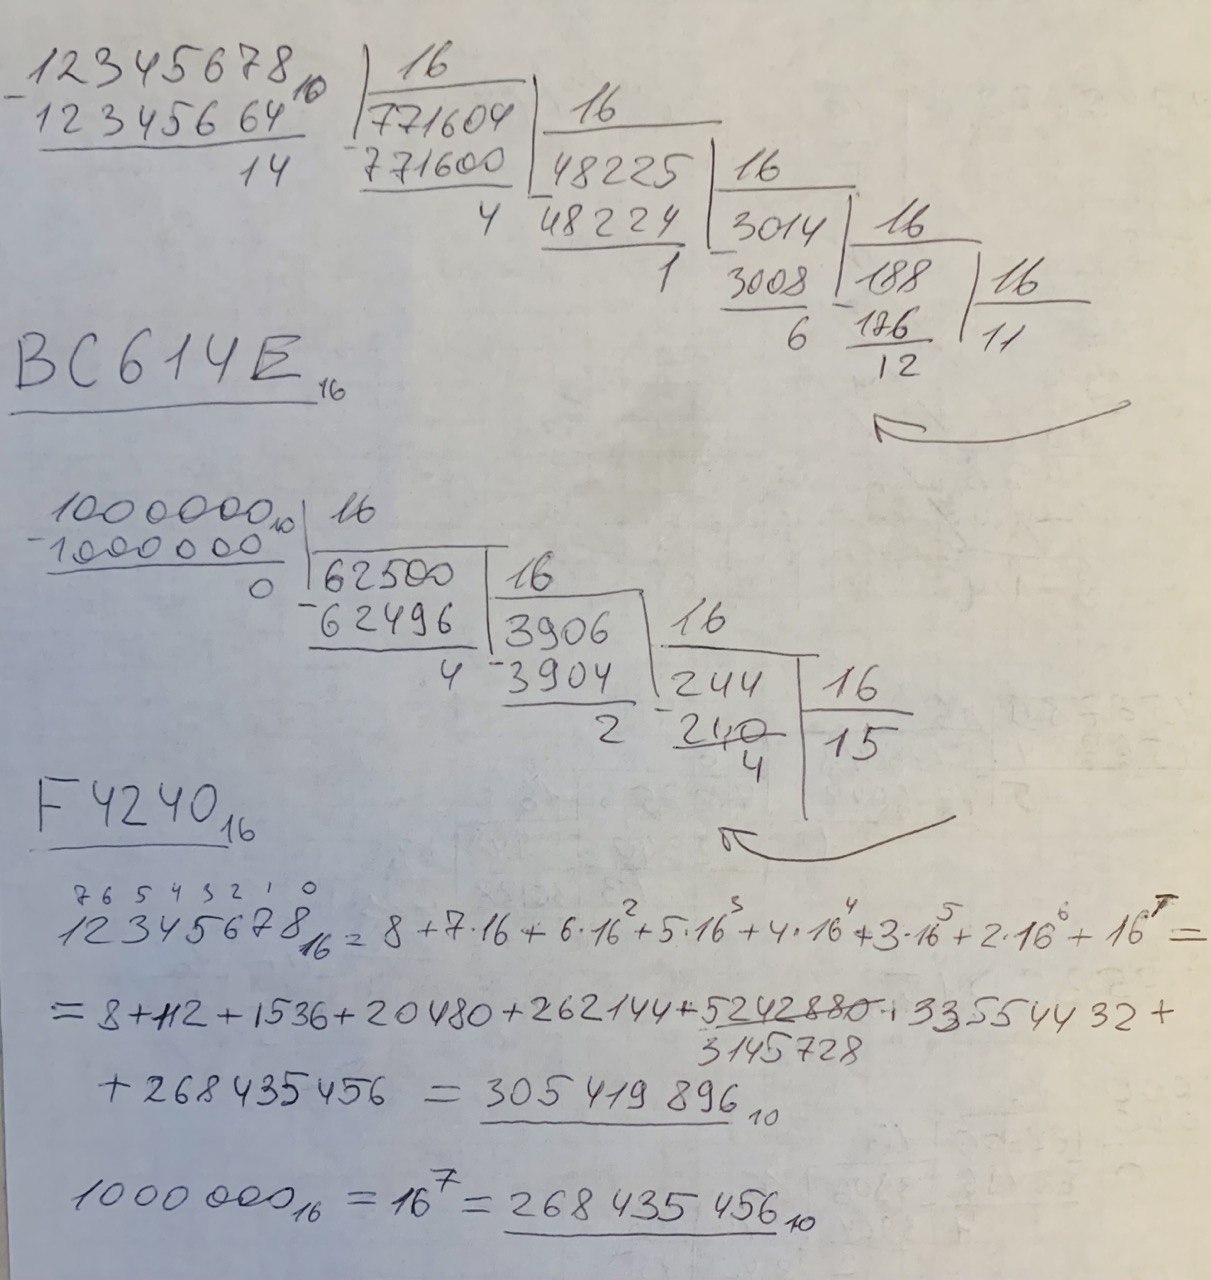 12345678₁₀ | 16
-12345664 | 771604 | 16
14 -771600 | 48225 | 16
4 -48224 | 3014 | 16
1 -3008 | 188 | 16
6 -176 | 11
12
BC614E₁₆
1000000₁₀ | 16
-1000000 | 62500 | 16
0 -62496 | 3906 | 16
4 -3904 | 244 | 16
2 -240 | 15
4
F4240₁₆
7 6 5 4 3 2 1 0
12345678₁₆ = 8 + 7·16 + 6·16² + 5·16³ + 4·16⁴ + 3·16⁵ + 2·16⁶ + 16⁷ =
= 8 + 112 + 1536 + 20480 + 262144 + 5242880 + 33554432 +
3145728
+ 268435456 = 305 419 896₁₀
1000 000₁₆ = 16⁷ = 268 435 456₁₀